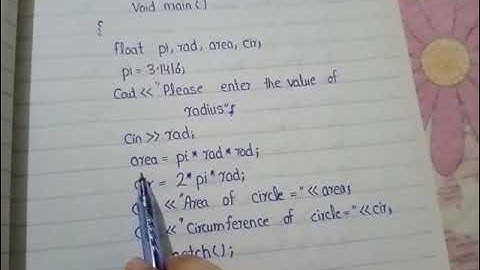 Void main()
{
float pi, rad, area, cir,
pi = 3.1416,
Cout << "Please enter the value of
radius";
Cin >> rad;
area = pi * rad * rad;
= 2 * pi * rad;
<< "Area of circle =" << area,
<< "Circumference of circle=" << cir,
getch();